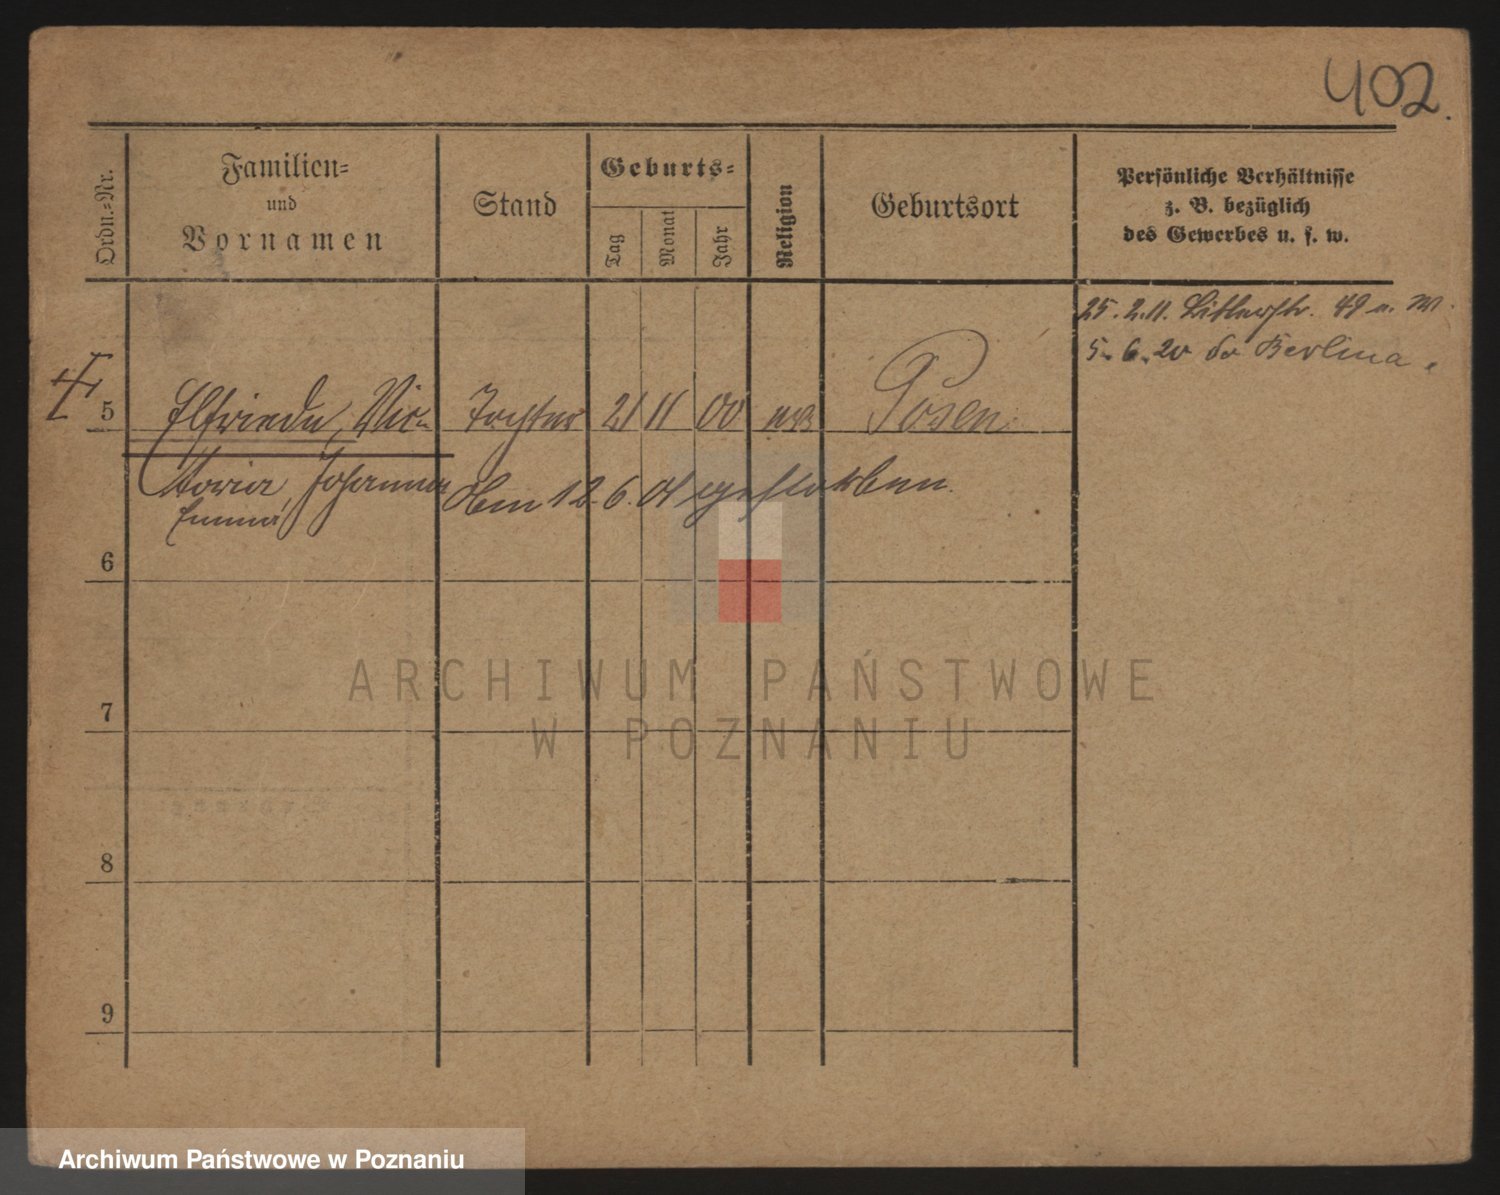 402.
Ordn.-Nr.
Familien-
und
Vornamen
Stand
Geburts-
Tag
Monat
Jahr
Religion
Geburtsort
Persönliche Verhältnisse
z. B. bezüglich
des Gewerbes u. s. w.
25. 2. 11. 49
5. 6. 20 Berlin
5 Elfriede, Vic- Tochter 21 11 00 Posen
toria, Johanna den 12. 6. 01 gestorben.
Emma
6
7
8
9
ARCHIWUM PAŃSTWOWE
W POZNANIU
Archiwum Państwowe w Poznaniu